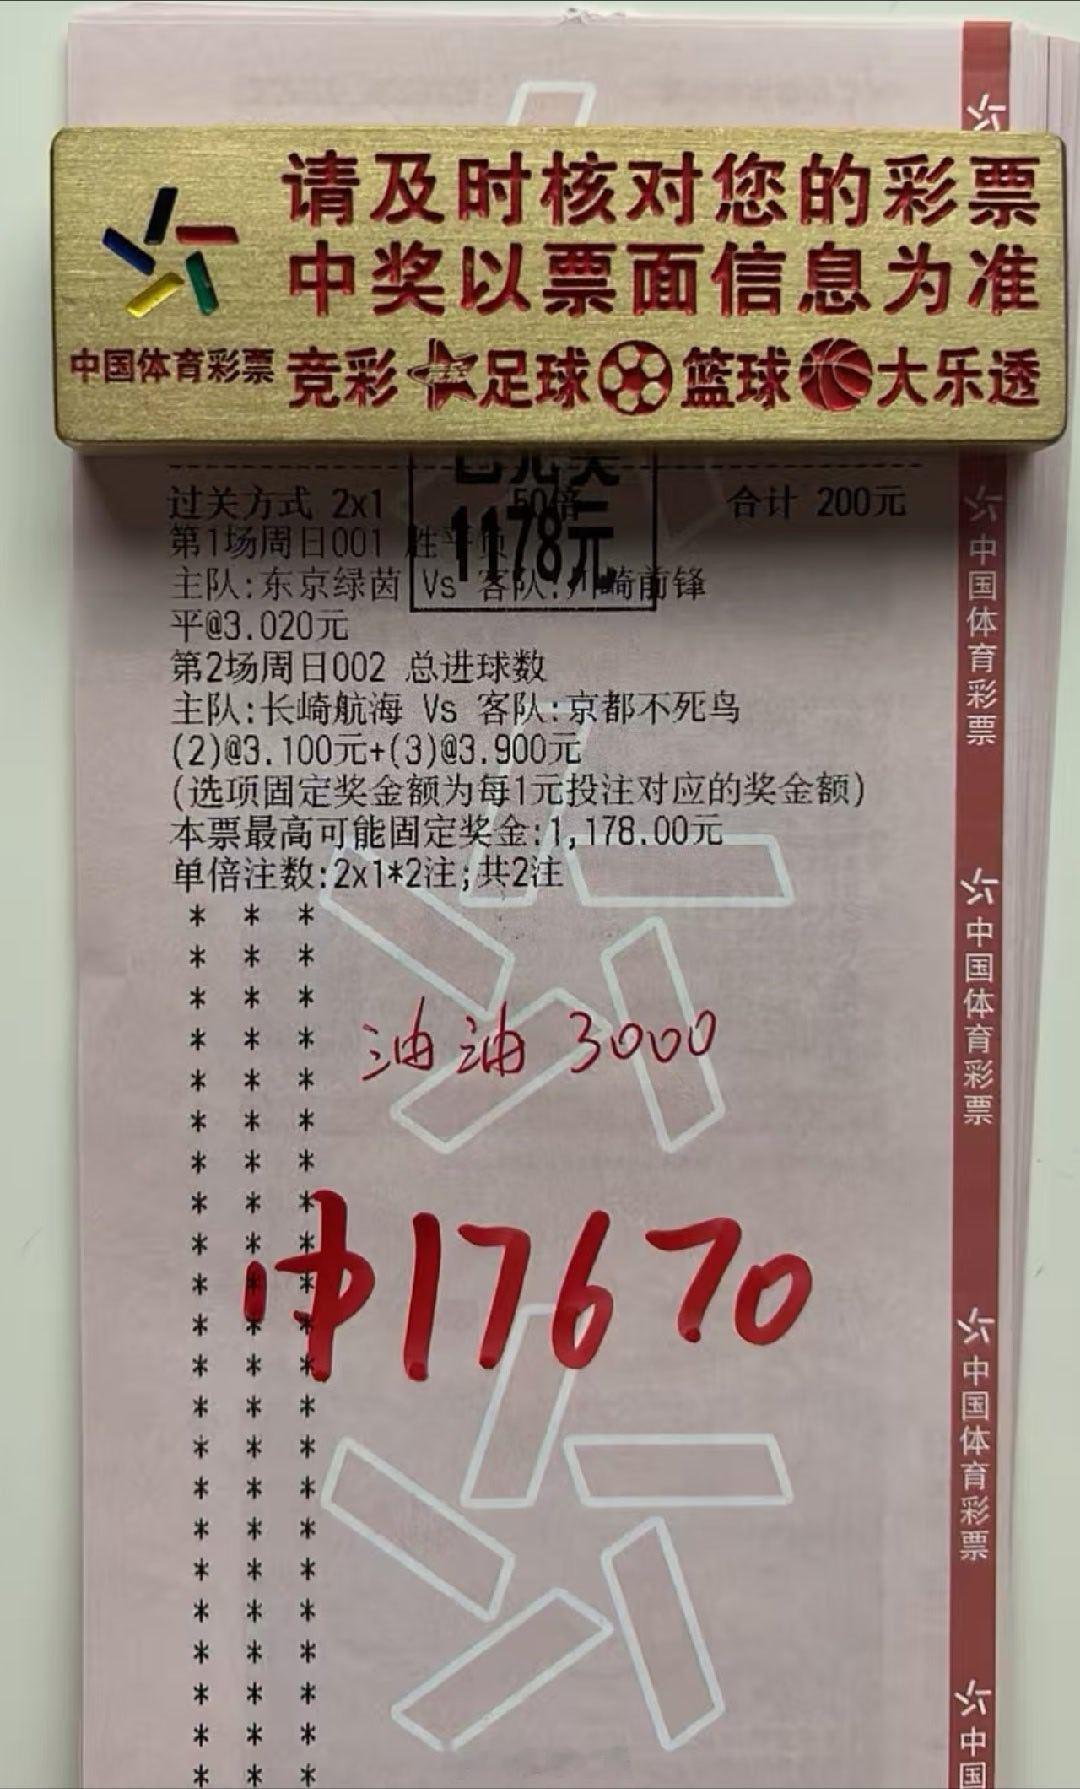 请及时核对您的彩票
中奖以票面信息为准
中国体育彩票 竞彩 足球 篮球 大乐透
已兑奖
1178元
过关方式 2x1 50倍 合计 200元
第1场周日001 胜平负
主队:东京绿茵 Vs 客队:川崎前锋
平@3.020元
第2场周日002 总进球数
主队:长崎航海 Vs 客队:京都不死鸟
(2)@3.100元+(3)@3.900元
(选项固定奖金额为每1元投注对应的奖金额)
本票最高可能固定奖金:1,178.00元
单倍注数:2x1*2注;共2注
油油 3000
中17670
中国体育彩票
中国体育彩票
中国体育彩票
中国